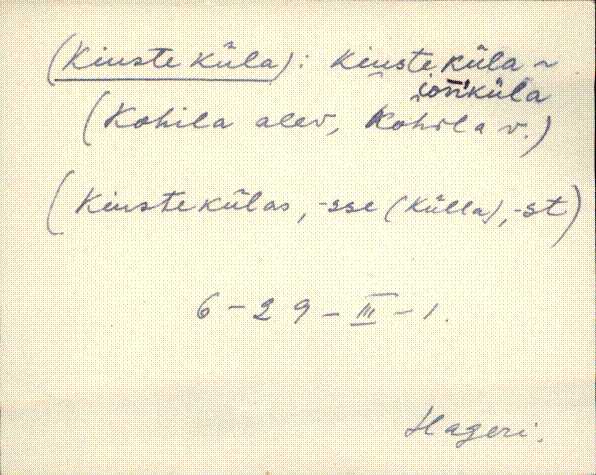 (Kiuste küla): kiuste küla ~
(Kohila alev, Kohila v.)
(Kiuste külas, -sse (külla), -st)
6-29-III-1.
Hageri.